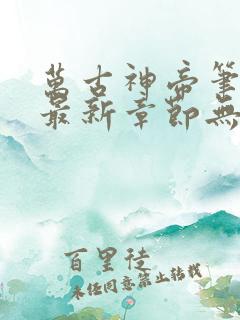 萬古神帝筆
最新章節無
百里徒
未经同意禁止转载